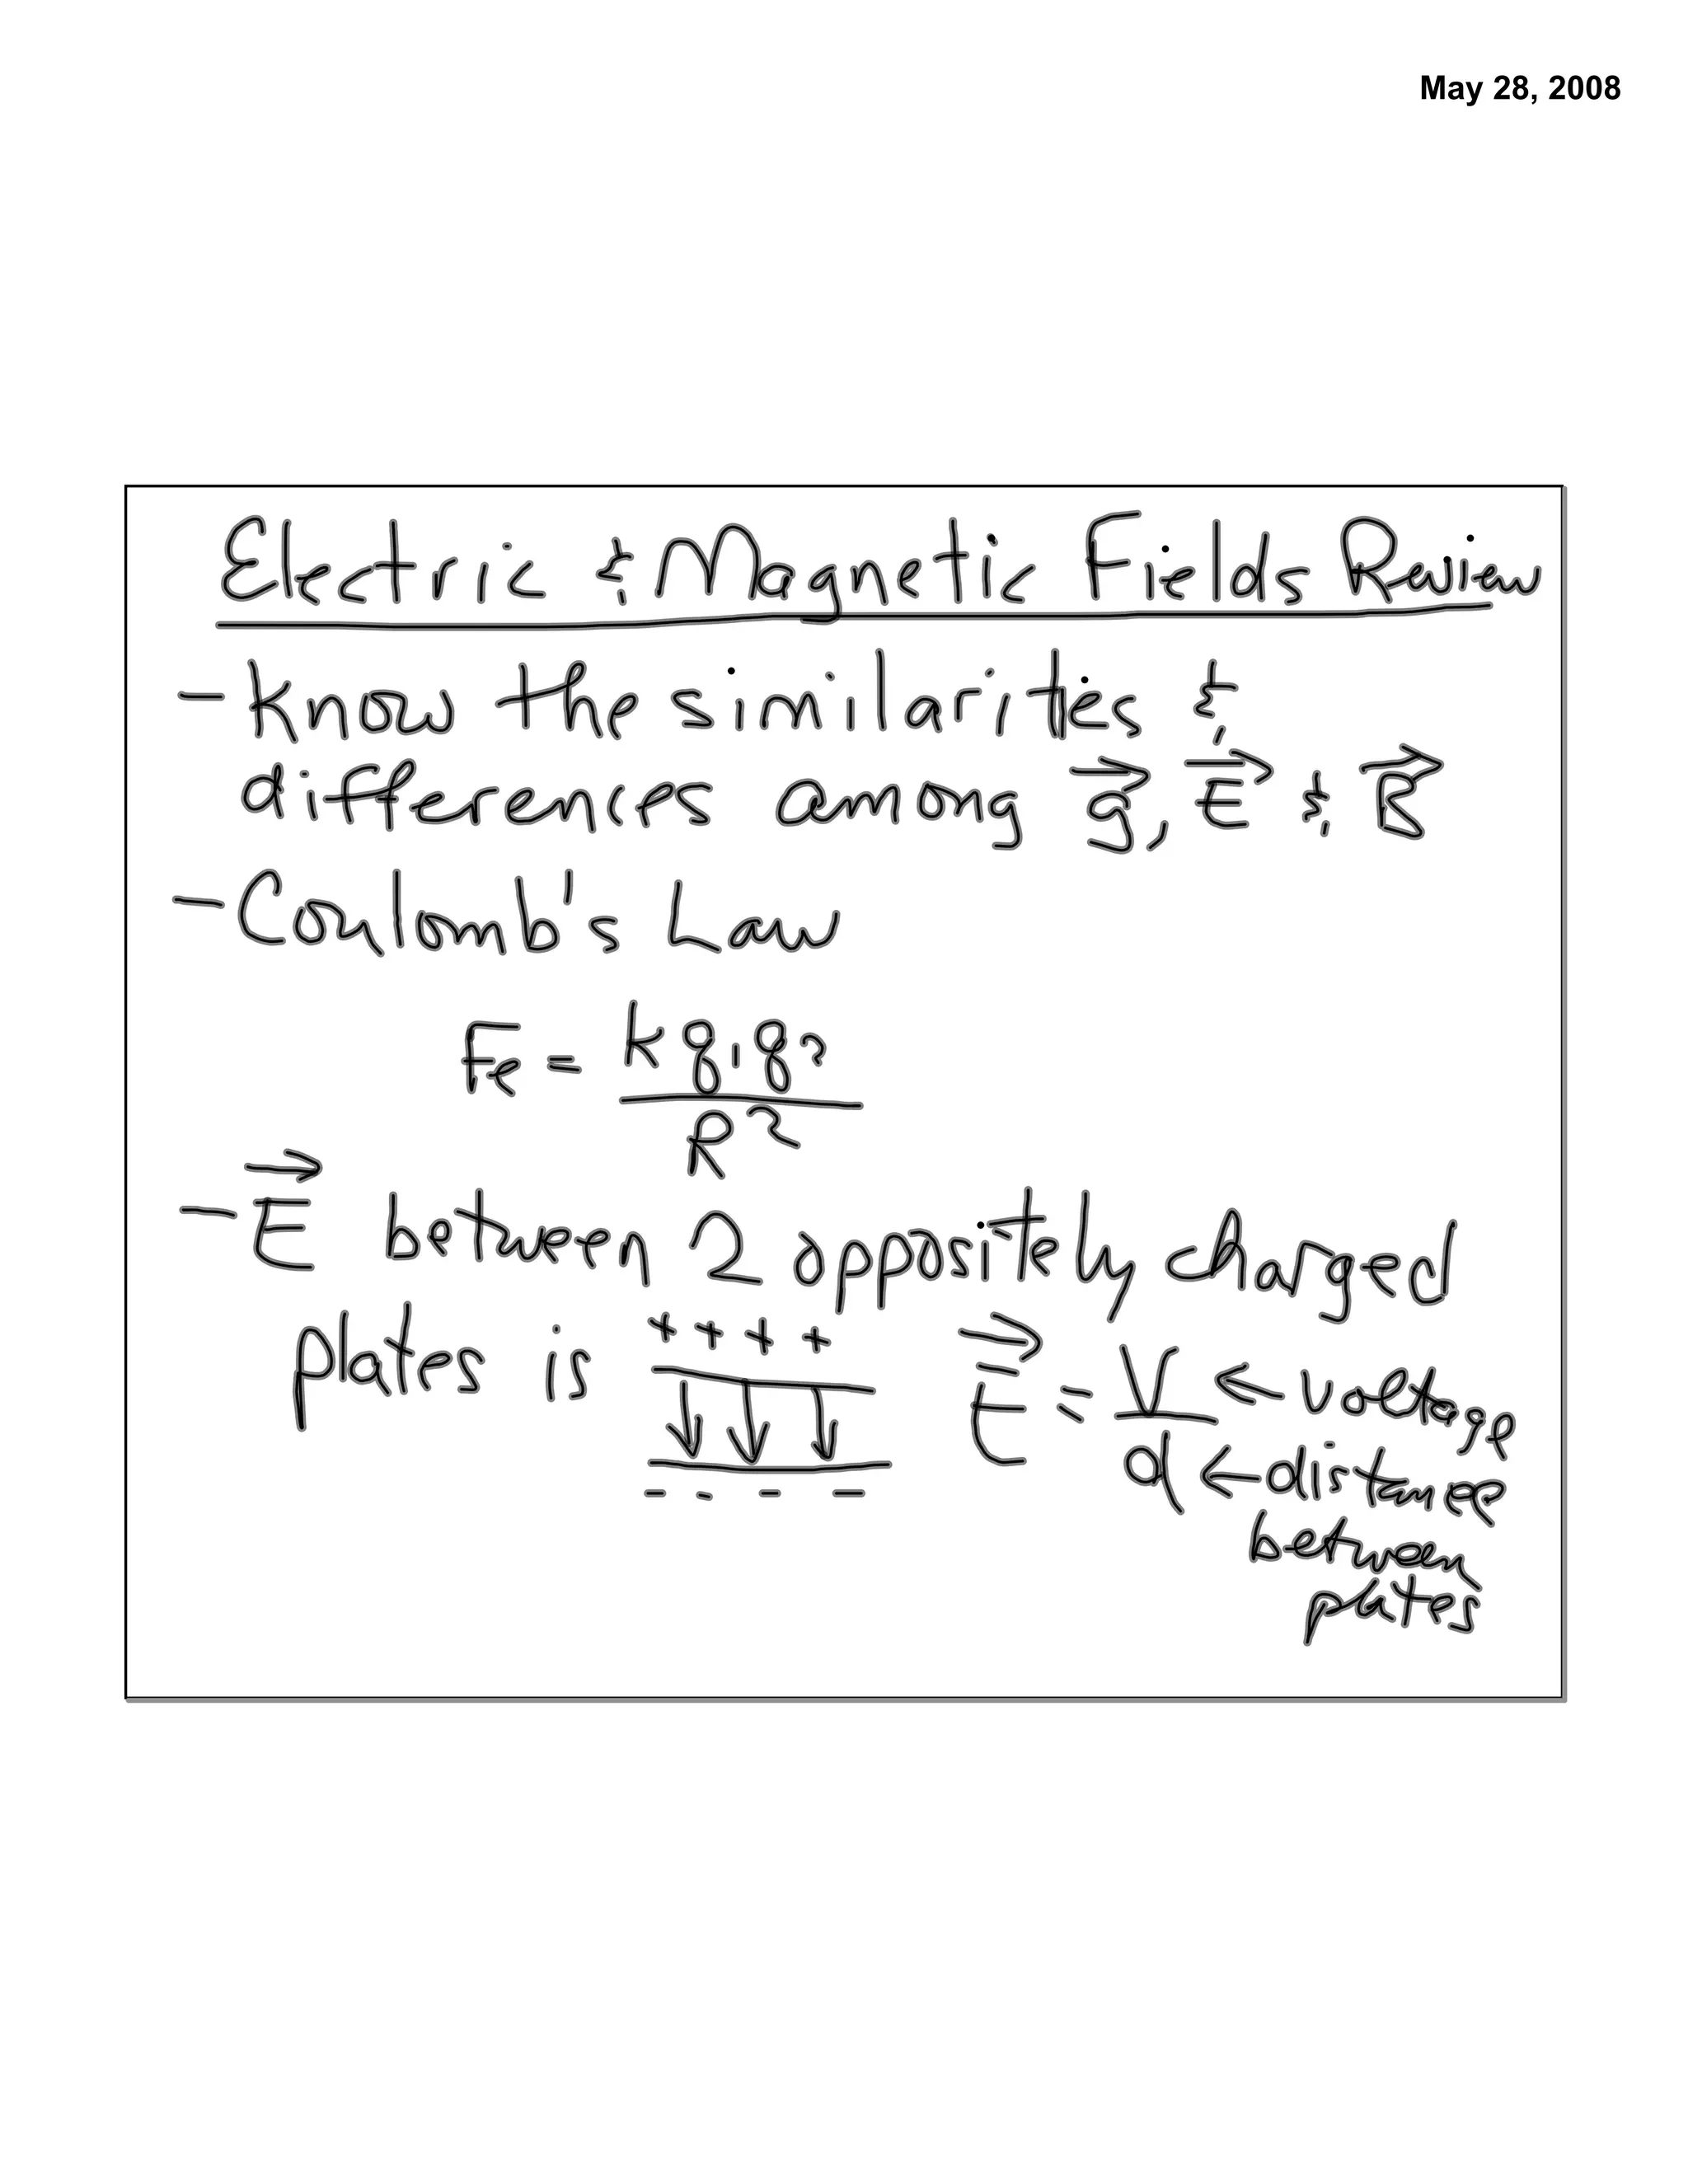 May 28, 2008
Electric & Magnetic Fields Review
- Know the similarities &
differences among g⃗, E⃗ & B⃗
- Coulomb's Law
Fe = kq1q2
R²
- E⃗ between 2 oppositely charged
plates is + + + + E⃗ = V ← voltage
- - - - d ← distance
between
plates